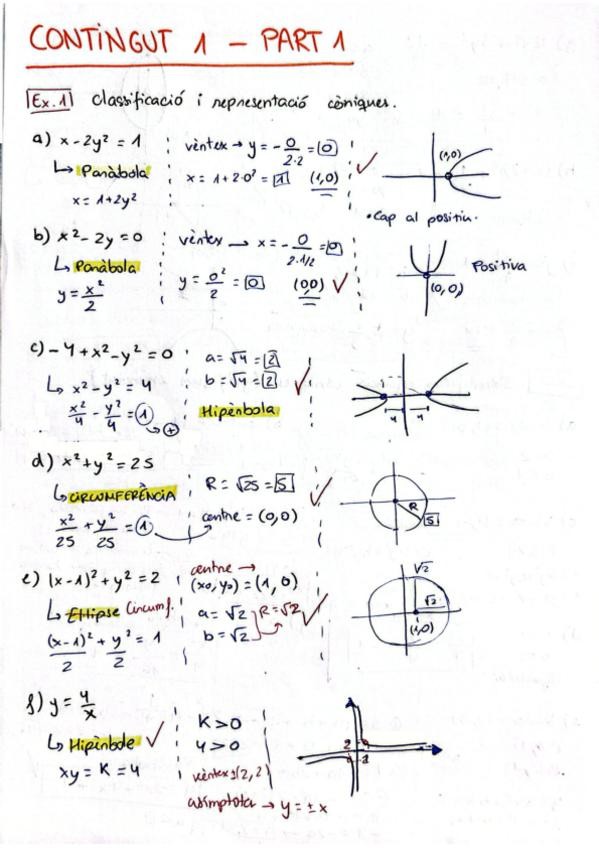 CONTINGUT 1 - PART 1
Ex.1 classificació i representació còniques.
a) x - 2y² = 1
↳ Paràbola
x = 1+2y²
vèrtex → y = -0/2·2 = 0
x = 1+2·0² = 1 (1,0)
(1,0)
•Cap al positiu.
b) x² - 2y = 0
↳ Paràbola
y = x²/2
vèrtex → x = -0/2·1/2 = 0
y = 0²/2 = 0 (0,0)
Positiva
(0,0)
c) -4 + x² - y² = 0
↳ x² - y² = 4
x²/4 - y²/4 = 1 → +
a = √4 = 2
b = √4 = 2
Hipèrbola
d) x² + y² = 25
↳ CIRCUMFERÈNCIA
x²/25 + y²/25 = 1
R = √25 = 5
centre = (0,0)
R
5
e) (x-1)² + y² = 2
↳ Ellipse Circumf.
(x-1)²/2 + y²/2 = 1
centre →
(x0, y0) = (1, 0)
a = √2
b = √2
R = √2
√2
√2
(1,0)
f) y = 4/x
↳ Hipèrbole
xy = K = 4
K > 0
4 > 0
vèrtexs(2,2)
asímptota → y = ± x
2
2